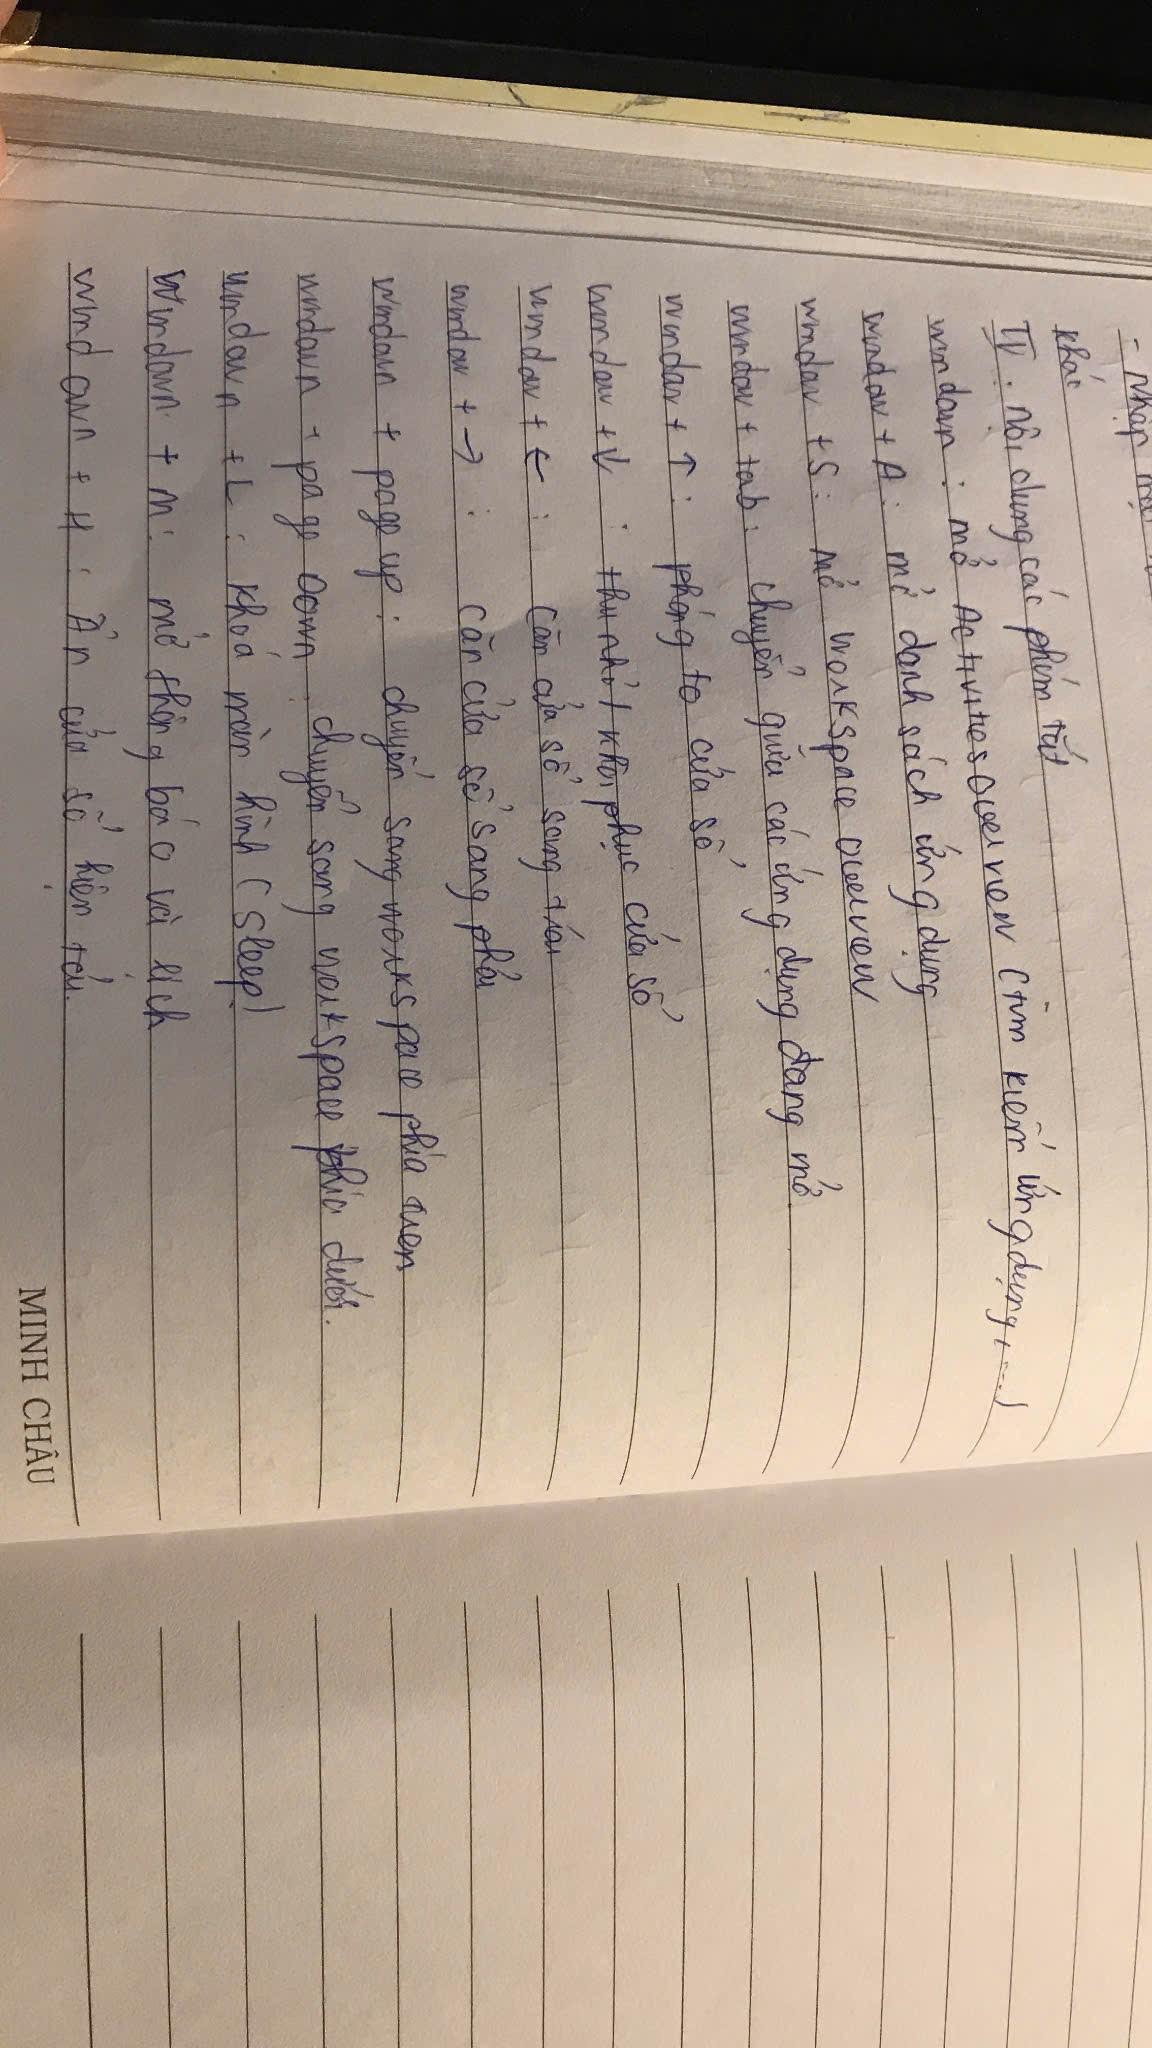 - nhập
khác
IV. nội dung các phím tắt
window : mở Activities Overview (tìm kiếm ứng dụng, ...)
window + A : mở danh sách ứng dụng
window + S : mở workspace overview
window + tab : chuyển giữa các ứng dụng đang mở
window + ↑ : phóng to cửa sổ
window + ↓ : thu nhỏ / khôi phục cửa sổ
window + ← : căn cửa sổ sang trái
window + → : căn cửa sổ sang phải
window + page up : chuyển sang workspace phía trên
window + page down : chuyển sang workspace phía dưới.
window + L : khoá màn hình (sleep)
window + N : mở thông báo và lịch
window + H : Ẩn cửa sổ hiện tại.
MINH CHÂU